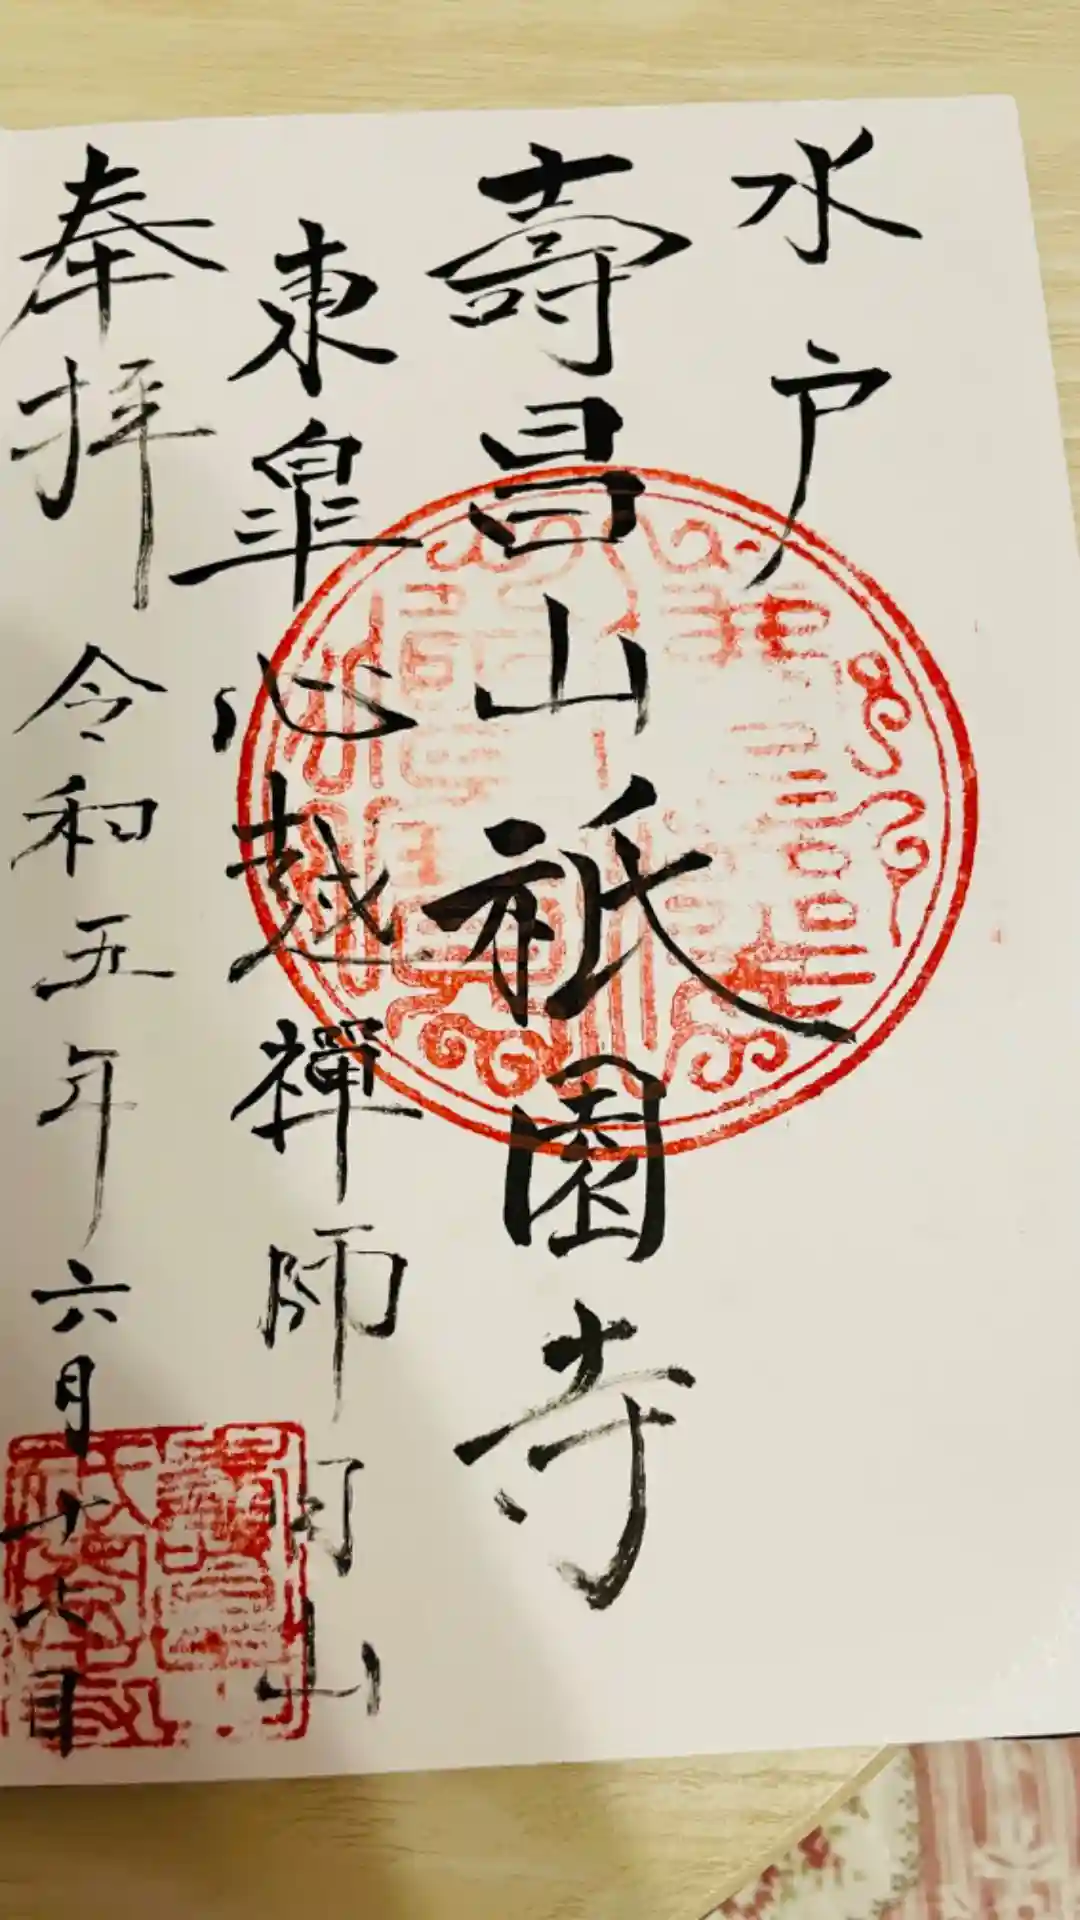 水戸
壽昌山祇園寺
東皐心越禅師開山
奉拝 令和五年六月十六日